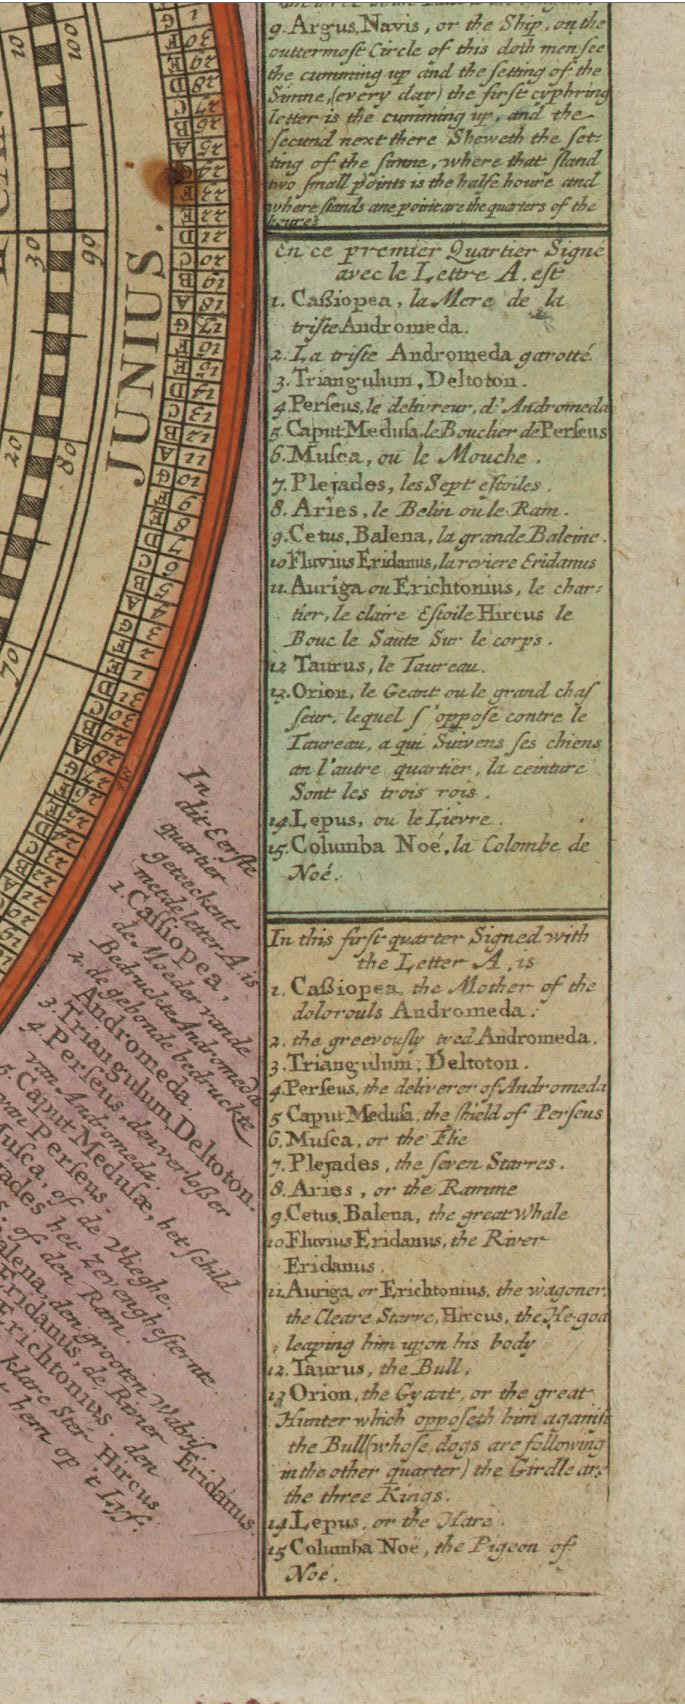 9. Argus, Navis, or the Ship, on the
outtermost Circle of this doth men see
the cumming up and the setting of the
Sunne, (every day) the first cyphring
letter is the cumming up, and the
second next there Sheweth the set:
ting of the sunne, where that stand
two small points is the halfe houre and
where stands one point are the quarters of the
houres
En ce premier Quartier Signé
avec le Lettre A. est
1. Caßiopea, la Mere de la
triste Andromeda.
2. La triste Andromeda garotté
3. Triangulum, Deltoton.
4. Perseus, le delivreur, d'Andromeda
5 Caput Medusa, le Bouclier de Perseus
6. Musca, ou le Mouche.
7. Plejades, les Sept estoiles.
8. Aries, le Belin ou le Ram.
9. Cetus, Balena, la grande Baleine.
10 Fluvius Eridanus, la reviere Eridanus
11. Auriga ou Erichtonius, le char:
tier, le claire Estoile Hircus le
Bouc le Saute Sur le corps.
12 Taurus, le Taureau.
13. Orion, le Geant ou le grand chas
seur, lequel s'oppose contre le
Taureau, a qui Suivens ses chiens
an l'autre quartier, la ceinture
Sont les trois rois.
14. Lepus, ou le Lievre.
15. Columba Noé, la Colombe de
Noé.
In this first quarter Signed with
the Letter A, is
1. Caßiopea, the Mother of the
dolorouls Andromeda.
2. the greevously tyed Andromeda.
3. Triangulum, Deltoton.
4. Perseus, the deliverer of Andromeda
5 Caput Medusa, the shield of Perseus
6. Musca, or the Flie
7. Plejades, the seven Starres.
8. Aries, or the Ramme
9. Cetus, Balena, the great Whale
10 Fluvius Eridanus, the River
Eridanus.
11. Auriga or Erichtonius, the wagoner,
the Cleare Starre, Hircus, the He-goa
leaping him upon his body
12. Taurus, the Bull,
13 Orion, the Gyant, or the great
Hunter which opposeth him against
the Bull (whose dogs are following
in the other quarter) the Girdle are
the three Kings.
14. Lepus, or the Hare.
15 Columba Noë, the Pigeon of
Noé.
JUNIUS.
10
100
30
90
20
80
70
In
dit Eerste
quartier
geteeckent
met de letter A is
1. Cassiopea,
de Moeder vande
Bedruckte Andromeda
2. de gebonde bedruckte
Andromeda.
3. Triangulum, Deltoton.
4. Perseus, den verloßer
van Andromeda.
5. Caput Medusæ, het schild
van Perseus.
Musca, of de Vlieghe.
ades het Zevenghesternte.
of den Ram.
alena, den grooten Walvis
Eridanus, de Rivier Eridanus
Erichtonius, den
klare Ster Hircus
hem op 't Lyf.